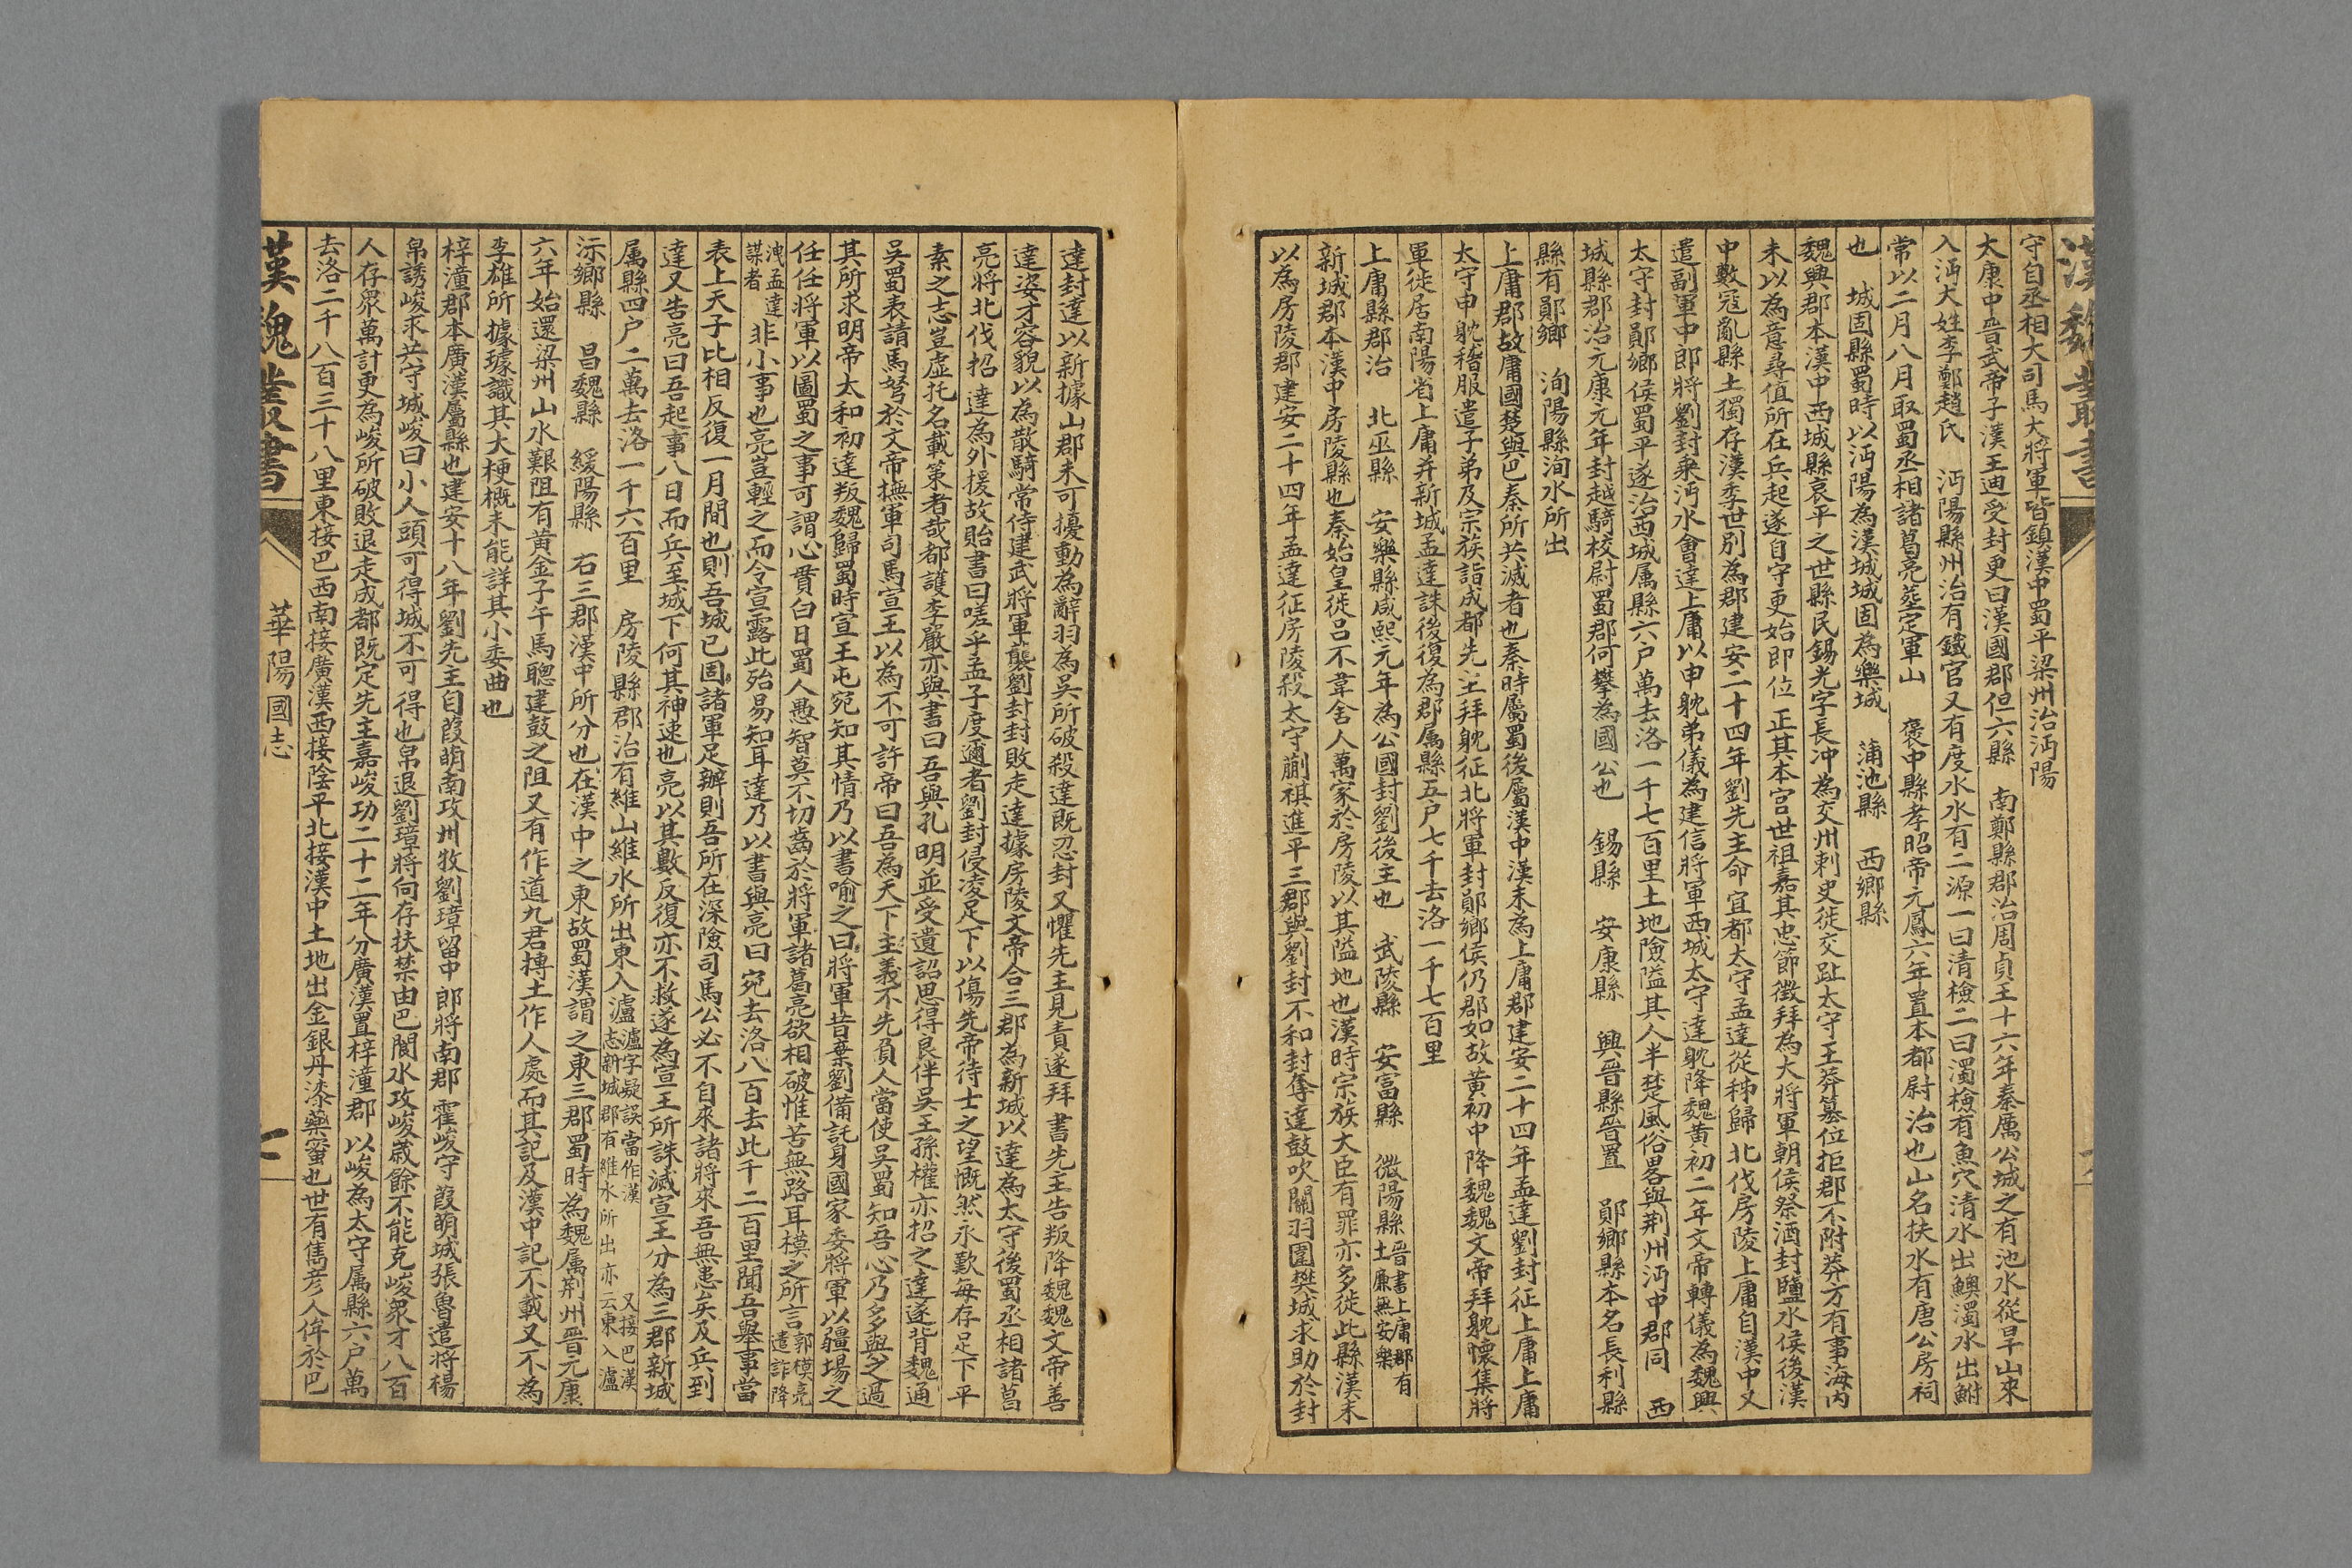 漢魏叢書
守自丞相大司馬大將軍皆鎮漢中蜀平梁州治沔陽
太康中晉武帝子漢王迪受封更曰漢國郡但六縣　南鄭縣郡治周貞王十六年秦厲公城之有池水從旱山來
入沔大姓李鄭趙氏　沔陽縣州治有鐵官又有度水水有二源一曰清檢二曰濁檢有魚穴清水出鱮濁水出鮒
常以二月八月取蜀丞相諸葛亮塟定軍山　褒中縣孝昭帝元鳳六年置本都尉治也山名扶水有唐公房祠
也　城固縣蜀時以沔陽為漢城城固為樂城　蒲池縣　西鄉縣
魏興郡本漢中西城縣哀平之世縣民錫光字長冲為交州刺史徙交趾太守王莽篡位拒郡不附莽方有事海內
未以為意尋值所在兵起遂自守更始即位正其本官世祖嘉其忠節徵拜為大將軍朝侯祭酒封鹽水侯後漢
中數寇亂縣土獨存漢季世別為郡建安二十四年劉先主命宜都太守孟達從秭歸北伐房陵上庸自漢中又
遣副軍中郎將劉封乘沔水會達上庸以申躭弟儀為建信將軍西城太守達躭降魏黃初二年文帝轉儀為魏興
太守封鄖鄉侯蜀平遂治西城属縣六户萬去洛一千七百里土地險隘其人半楚風俗畧與荆州沔中郡同　西
城縣郡治元康元年封越騎校尉蜀郡何攀為國公也　錫縣　安康縣　興晉縣晉置　鄖鄉縣本名長利縣
縣有鄖鄉　洵陽縣洵水所出
上庸郡故庸國楚與巴秦所共滅者也秦時屬蜀後屬漢中漢末為上庸郡建安二十四年孟達劉封征上庸上庸
太守申躭稽服遣子弟及宗族詣成都先主拜躭征北將軍封鄖鄉侯仍郡如故黃初中降魏魏文帝拜躭懷集將
軍徙居南陽省上庸并新城孟達誅後復為郡属縣五户七千去洛一千七百里
上庸縣郡治　北巫縣　安樂縣咸熙元年為公國封劉後主也　武陵縣　安富縣　微陽縣晉書上庸郡有土廉無安樂
新城郡本漢中房陵縣也秦始皇徙呂不韋舍人萬家於房陵以其隘地也漢時宗族大臣有罪亦多徙此縣漢末
以為房陵郡建安二十四年孟達征房陵殺太守蒯祺進平三郡與劉封不和封奪達鼓吹關羽圍樊城求助於封
達封達以新據山郡未可擾動為辭羽為吳所破殺達既忍封又懼先主見責遂拜書先主告叛降魏魏文帝善
達姿才容貌以為散騎常侍建武將軍襲劉封封敗走達據房陵文帝合三郡為新城以達為太守後蜀丞相諸葛
亮將北伐招　達為外援故貽書曰嗟乎孟子度邇者劉封侵凌足下以傷先帝待士之望慨然永歎每存足下平
素之志豈虛托名載策者哉都護李嚴亦與書曰吾與孔明並受遺詔思得良伴吳王孫權亦招之達遂背魏通
吳蜀表請馬弩於文帝撫軍司馬宣王以為不可許帝曰吾為天下主義不先負人當使吳蜀知吾心乃多與之過
其所求明帝太和初達叛魏歸蜀時宣王屯宛知其情乃以書喻之曰將軍昔棄劉備託身國家委將軍以疆場之
任任將軍以圖蜀之事可謂心貫白日蜀人愚智莫不切齒於將軍諸葛亮欲相破惟苦無路耳模之所言郭模亮遣詐降
洩孟達謀者非小事也亮豈輕之而令宣露此殆易知耳達乃以書與亮曰宛去洛八百去此千二百里聞吾舉事當
表上天子比相反復一月間也則吾城已固諸軍足辦則吾所在深險司馬公必不自來諸將來吾無患矣及兵到
達又告亮曰吾起事八日而兵至城下何其神速也亮以其數反復亦不救遂為宣王所誅滅宣王分為三郡新城
属縣四户二萬去洛一千六百里　房陵縣郡治有維山維水所出東入瀘瀘字疑誤當作漢　又接巴漢志新城郡有維水所出亦云東入瀘
沶鄉縣　昌魏縣　綏陽縣　右三郡漢中所分也在漢中之東故蜀漢謂之東三郡蜀時為魏属荆州晉元康
六年始還梁州山水艱阻有黃金子午馬聰建鼓之阻又有作道九君摶土作人處而其記及漢中記不載又不為
李雄所據璩識其大梗概未能詳其小委曲也
梓潼郡本廣漢屬縣也建安十八年劉先主自葭萌南攻州牧劉璋留中郎將南郡霍峻守葭萌城張魯遣將楊
帛誘峻求共守城峻曰小人頭可得城不可得也帛退劉璋將向存扶禁由巴閬水攻峻歲餘不能克峻眾才八百
人存眾萬計更為峻所破敗退走成都既定先主嘉峻功二十二年分廣漢置梓潼郡以峻為太守属縣六户萬
去洛二千八百三十八里東接巴西南接廣漢西接陰平北接漢中土地出金銀丹漆藥蜜也世有雋彥人侔於巴
漢魏叢書　華陽國志　七